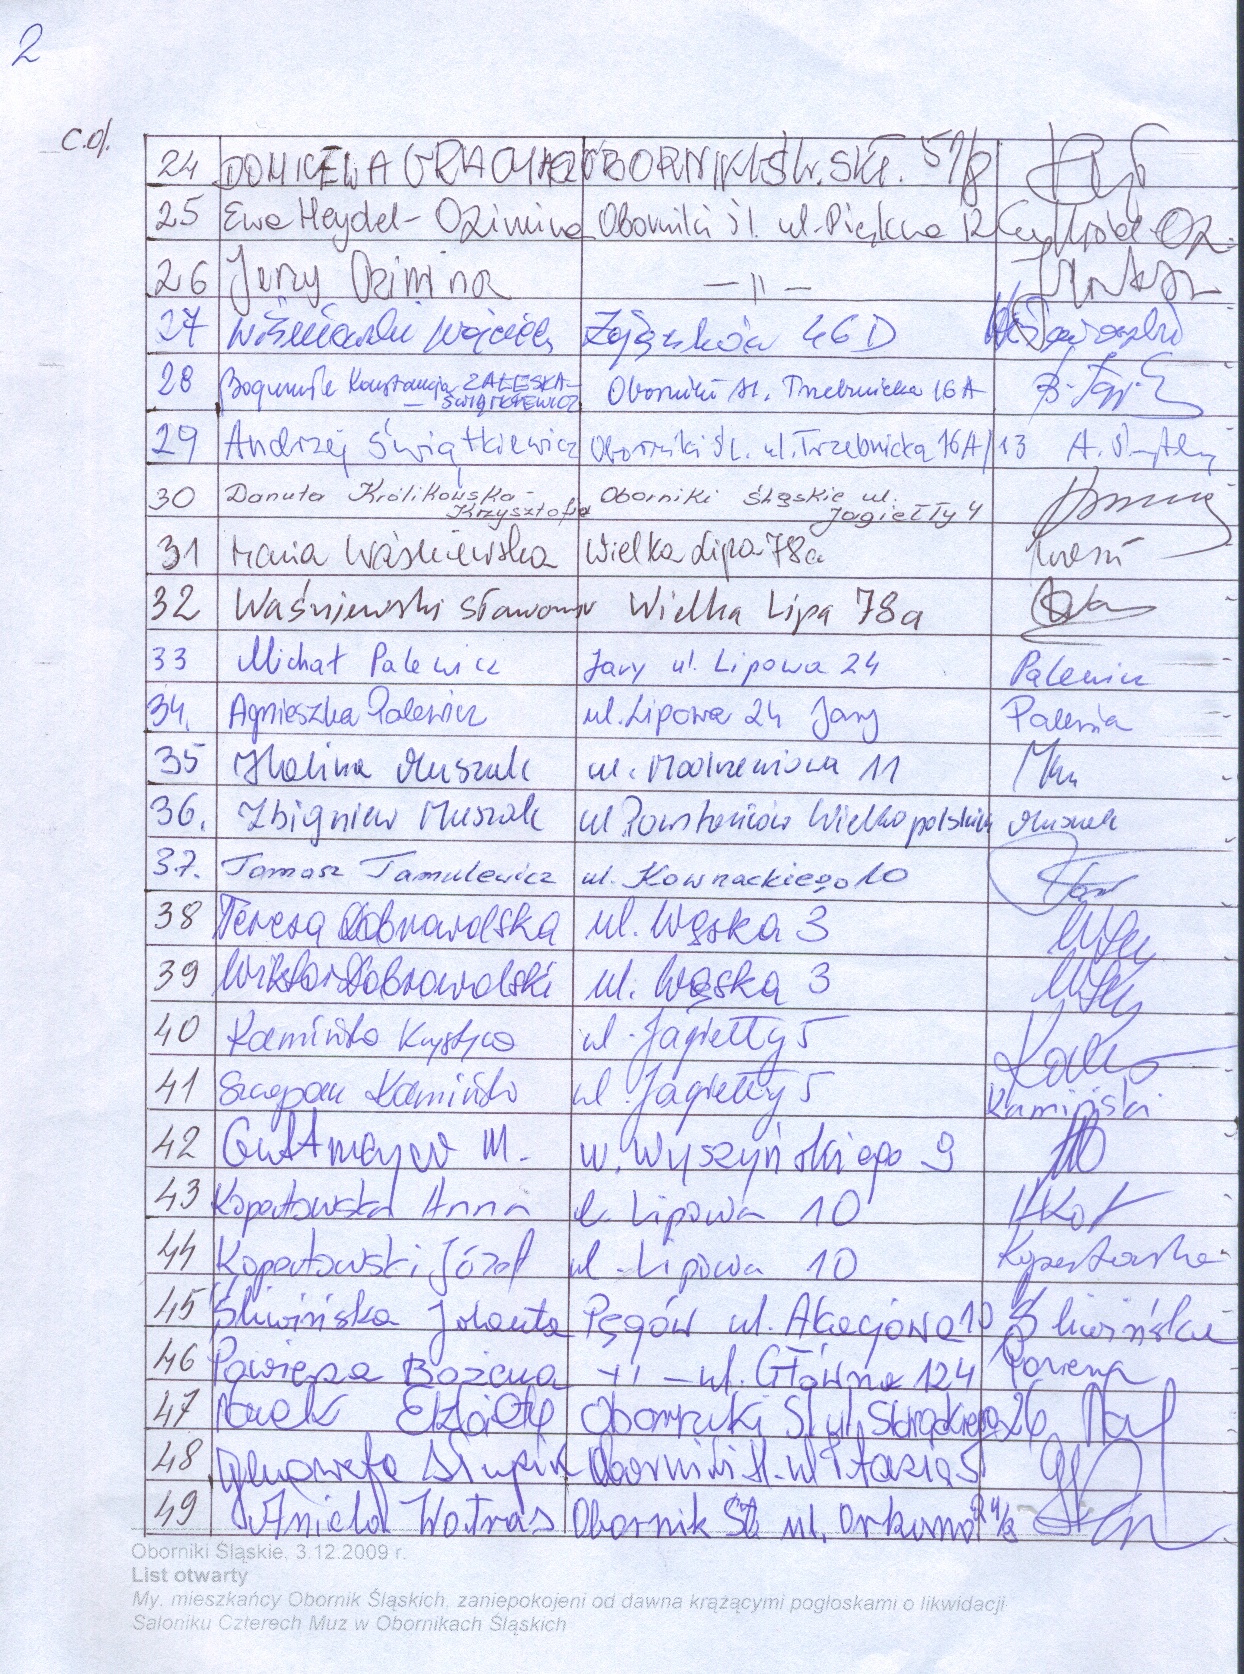 2
c.d.
24 OBORNIKI ŚL. SKŁ. 57/8
25 Ewa Heydel-Ozimina Oborniki śl. ul. Piękna 12
26 Jerzy Ozimina — " —
27 Wiśniewski Wojciech 46 D
28 Bogumiła Konstancja ZAŁĘSKA- Oborniki śl. Trzebnicka 16A
— ŚWIĄTKIEWICZ
29 Andrzej Świątkiewicz Oborniki Śl. ul. Trzebnicka 16A/13
30 Danuta Królikowska- Oborniki Śląskie ul.
Krzysztofia Jagiełły 4
31 Maria Waśniewska Wielka Lipa 78a
32 Waśniewski Sławomir Wielka Lipa 78a
33 Michał Palewicz Jary ul. Lipowa 24 Palewicz
34. Agnieszka Palewicz ul. Lipowa 24 Jary
35 Halina Muszak ul. Modrzewiowa 11
36. Zbigniew Muszak ul. Powstańców Wielkopolskich Muszak
37. Tomasz Tamulewicz ul. Kownackiego 10
38 Teresa Dobrowolska ul. Wąska 3
39 Wiktor Dobrowolski ul. Wąska 3
40 Kamińska Krystyna ul. Jagiełły 5
41 Szczepan Kamiński ul. Jagiełły 5 Kamiński
42 M. Wyszyńskiego 9
43 Kopertowska Anna ul. Lipowa 10
44 Kopertowski Józef ul. Lipowa 10 Kopertowska
45 Śliwińska Jolanta Pęgów ul. Akacjowa 10 Śliwińska
46 Bożena — " — ul. Główna 124
47 Elżbieta Oborniki Śl ul. 26
48 Oborniki śl. ul. 5
49 Aniela Watras Obornik Śl. ul. 24/2
Oborniki Śląskie, 3.12.2009 r.
List otwarty
My, mieszkańcy Obornik Śląskich, zaniepokojeni od dawna krążącymi pogłoskami o likwidacji
Saloniku Czterech Muz w Obornikach Śląskich